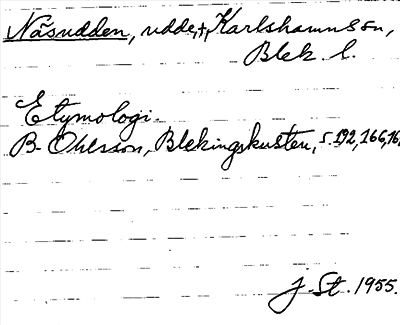 Näsudden, udde, +, Karlshamns sn,
Blek. l.
Etymologi.
B. Ohlsson, Blekingskusten, s. 192, 166,
J. St. 1955.